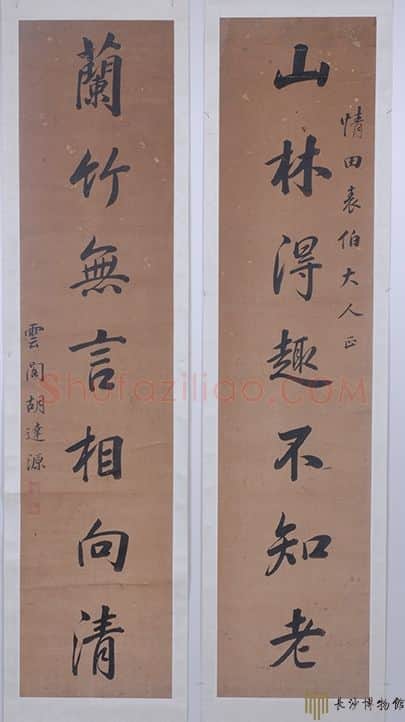 山林得趣不知老
情田表伯大人正
蘭竹無言相向清
雲閣胡達源
Shufaziliao.com
長沙博物館